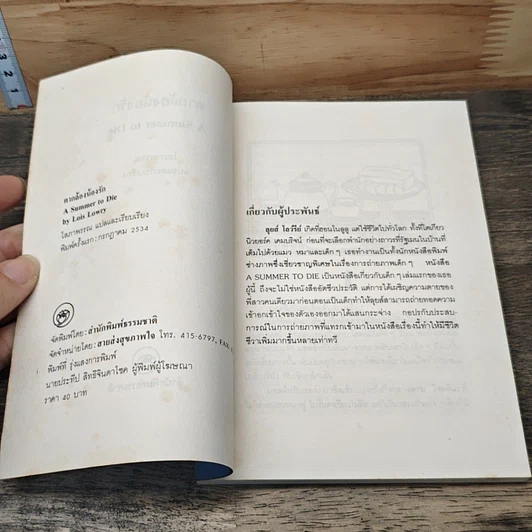 ตากล้องน้องรัก
A Summer to Die
by Lois Lowry
โสภาพรรณ แปลและเรียบเรียง
พิมพ์ครั้งแรก : กรกฎาคม 2534
จัดพิมพ์โดย : สำนักพิมพ์ธรรมชาติ
จัดจำหน่ายโดย : สายส่งสุขภาพใจ โทร. 415-6797,
พิมพ์ที่ รุ่งแสงการพิมพ์
นายประทีป สิทธิจินดาโชค ผู้พิมพ์ผู้โฆษณา
ราคา 40 บาท
เกี่ยวกับผู้ประพันธ์
ลูยส์ โลว์รีย์ เกิดที่ฮอนโนลูลู แต่ใช้ชีวิตไปทั่วโลก ทั้งที่โตเกียว
นิวยอร์ค เคมบริจน์ ก่อนที่จะเลือกพำนักอย่างถาวรที่รัฐเมนในบ้านที่
เต็มไปด้วยแมว หมาและเด็ก ๆ เธอทำงานเป็นทั้งนักหนังสือพิมพ์
ช่างภาพซึ่งเชี่ยวชาญพิเศษในเรื่องการถ่ายภาพเด็ก ๆ หนังสือ
A SUMMER TO DIE เป็นหนังสือเกี่ยวกับเด็ก ๆ เล่มแรกของเธอ
ผู้นี้ ถึงจะไม่ใช่หนังสืออัตชีวประวัติ แต่การได้เผชิญความตายของ
พี่สาวคนเดียวมาก่อนตอนเป็นเด็กทำให้ลูยส์สามารถถ่ายทอดความ
เศร้าอกเศร้าใจของตัวเองออกมาได้แสนกระจ่าง กอปรกับประสบ-
การณ์ในการถ่ายภาพที่แทรกเข้ามาในหนังสือเรื่องนี้ทำให้มีชีวิต
ชีวาเพิ่มมากขึ้นหลายเท่าทวี
1
2
3